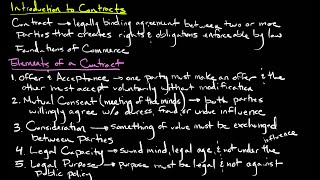 Introduction to Contracts
Contract → legally binding agreement between two or more
parties that creates rights & obligations enforceable by law
Foundations of Commerce
Elements of a Contract
1. Offer & Acceptance → one party must make an offer & the
other must accept voluntarily without modification
2. Mutual Consent (meeting of the minds) → both parties
willingly agree w/o duress, fraud or undue influence
3. Consideration → something of value must be exchanged
between parties
influence
4. Legal Capacity → sound mind, legal age, & not under the
5. Legal Purpose → purpose must be legal & not against
public policy